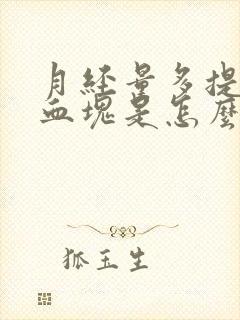 月经量多提
血塊是怎麼
狐玉生